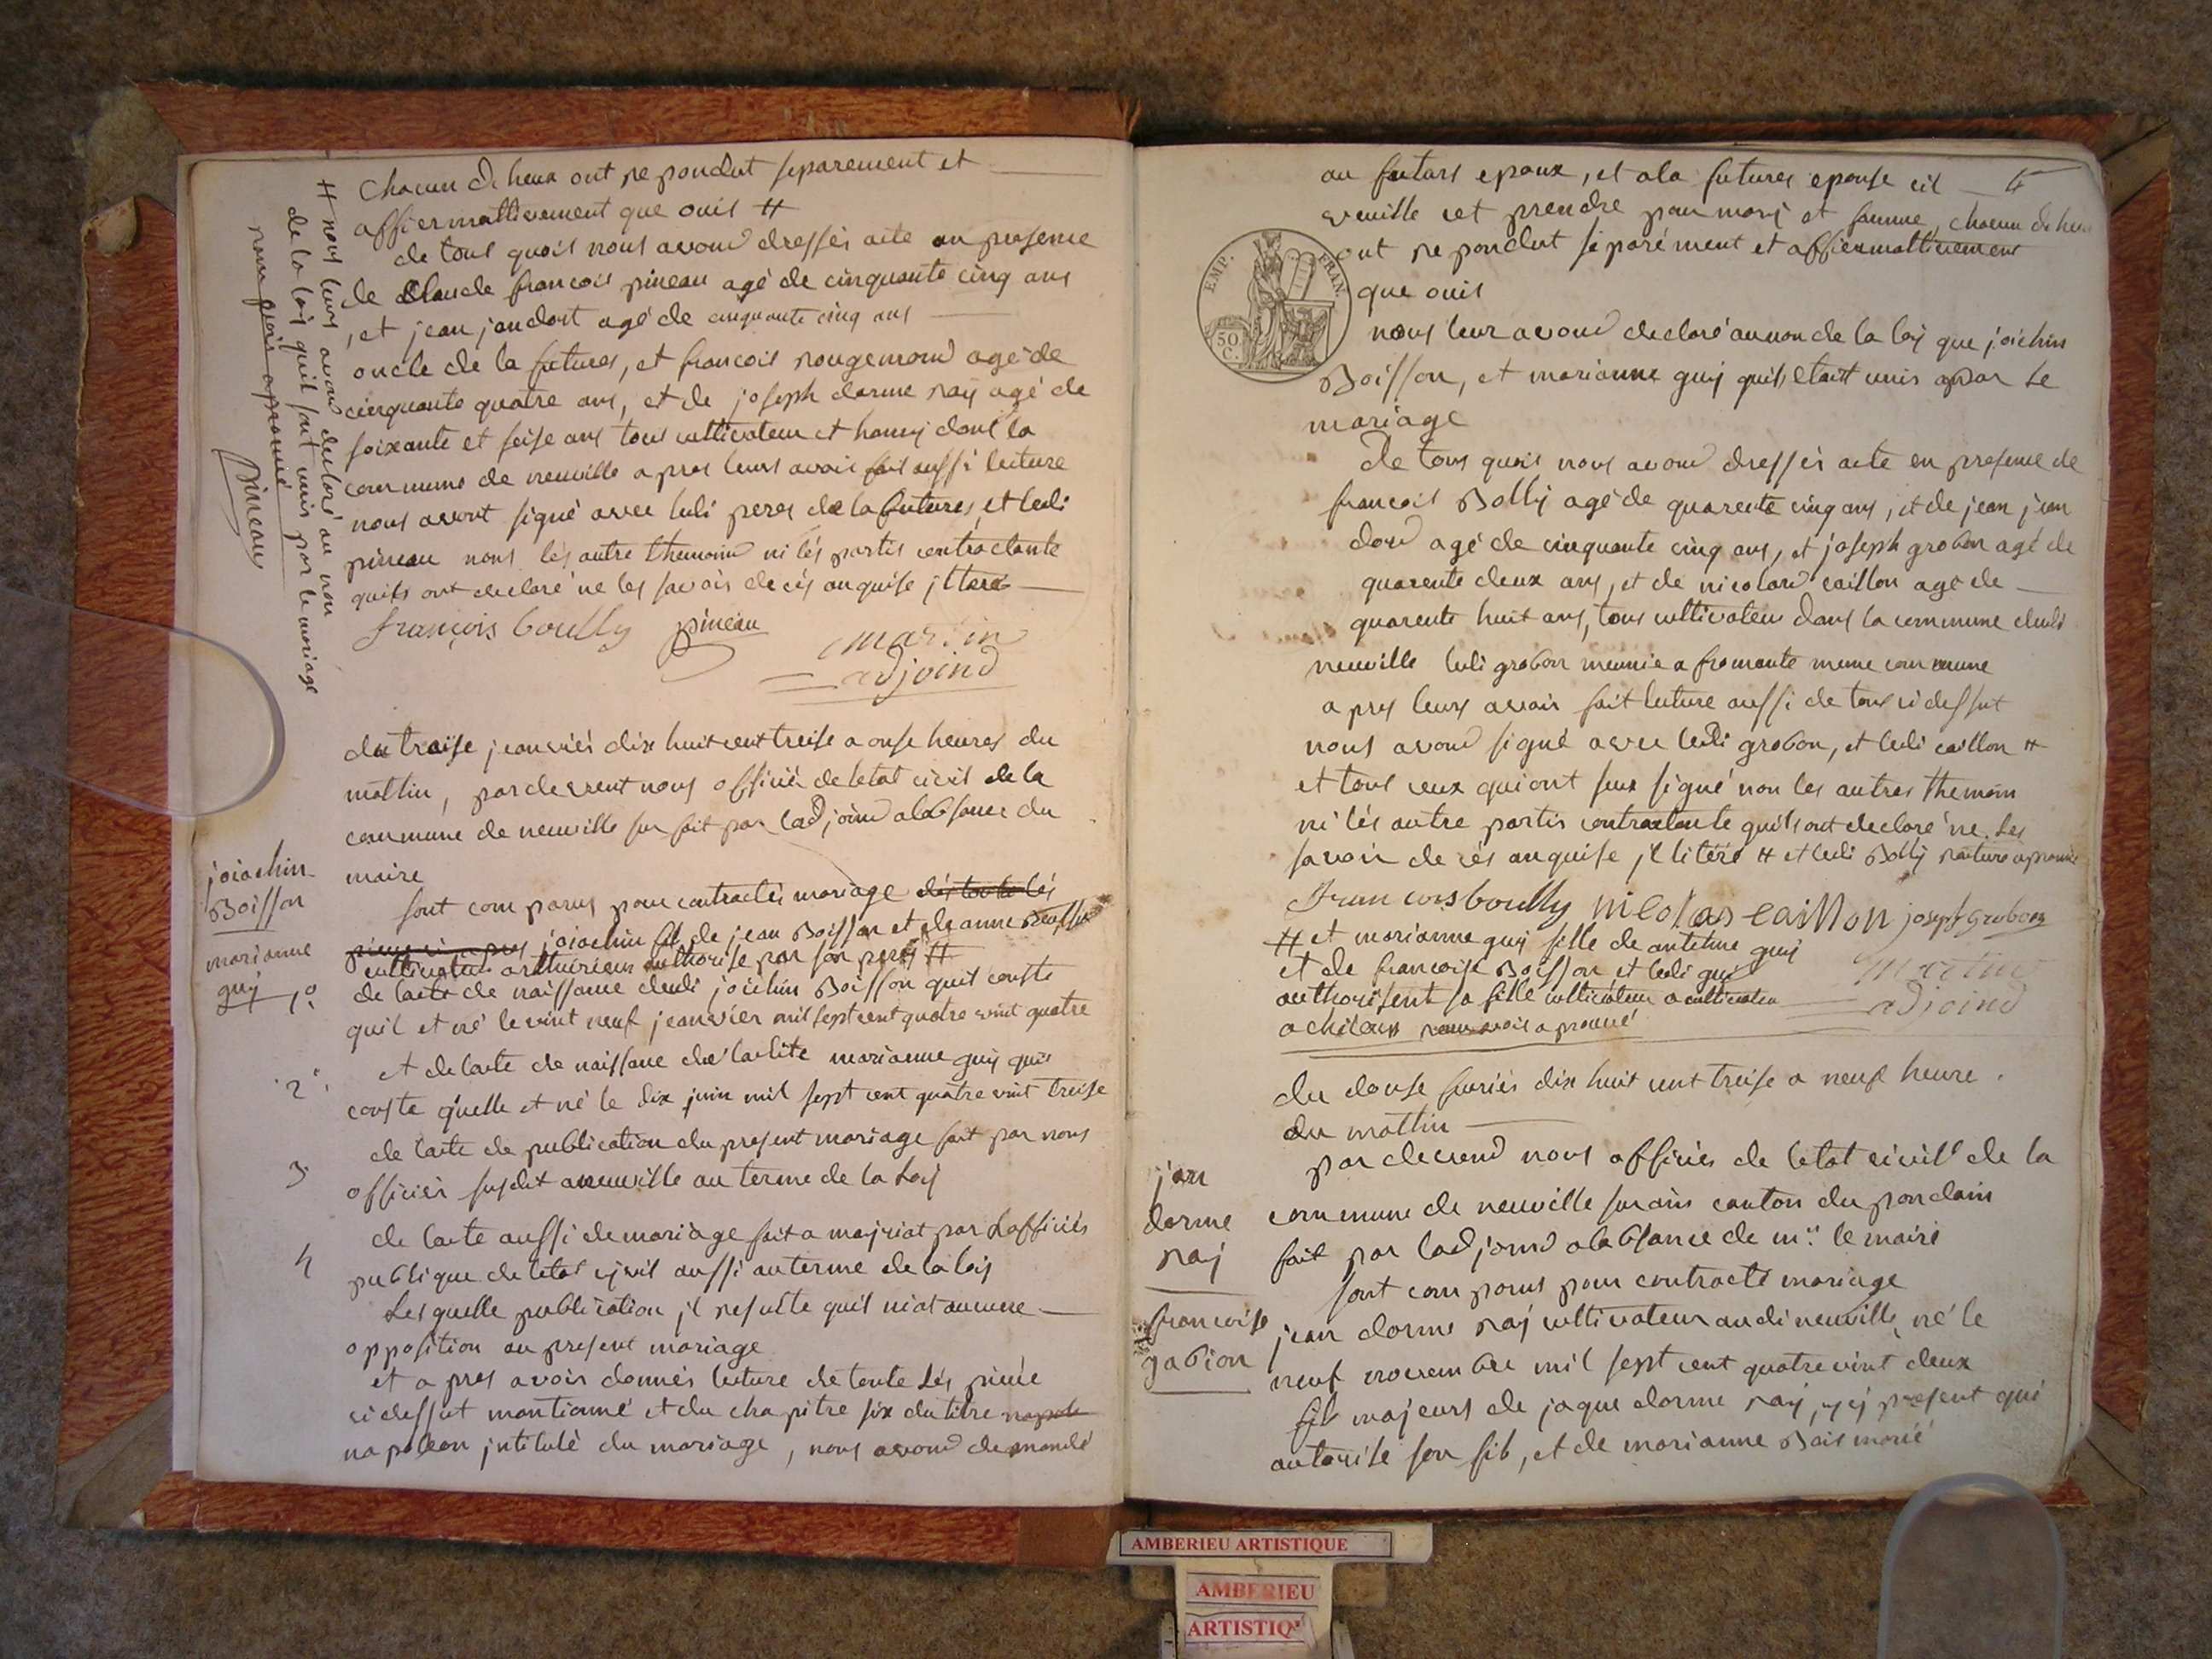 Chacun de heux ont re pondut separement et
affiermattivement que ouis #
de tous quois nous avond dressés acte en presence
de Claude francois pineau agé de cinquante cinq ans
, et jean jandost agé de cinquante cinq ans
oncle de la futures, et francois rougemond agé de
cinquante quatre ans, et de joseph dorme ray agé de
soixante et seise ans tous cultivateur et
commune de neuville a pres leurs avois fait aussi lecture
nous avont signé avec ledi peres de la futures, et ledi
pineau nous lés autre themoind ni lés partis contractante
quils ont declaré ne les savoir de cés anquise
françois boully pineau
martin
adjoind
# nous leurs avond declaré au non
de la loy quil sont unis par le mariage
pineau
du traise jeanviés dix huit cent treise a onse heures du
mattin, pardevent nous officié de letat civil de la
commune de neuville sur fait par ladjoind alabsance du
maire
joiachin
Boisson
marianne
guy
sont com parus pour contractés mariage
joiachin fils de jean Boisson et de anne
cultivateur authorise par son peres #
1°
de lacte de naissance dudi joichin Boisson quit conste
quil et né le vint neuf jeanviér mil sept cent quatre vint quatre
2°
et de lacte de naissane de ladite marianne guy quis
conste quelle et né le dix juin mil sept cent quatre vint treise
3
de lacte de publication du present mariage fait par nous
officiér susdit aneuville au terme de la Loy
4
de lacte aussi de mariage fait a majriat par Lofficiés
publique de letat sivil aussi au terme de la loy
Les quelle publication jl resulte quil niat aucune
opposition au present mariage
et a pres avoir donnés lecture de toute Lés piecée
ci dessut mantionné et du cha pitre six du titre napole
napoleon jntitulé du mariage, nous avond demandé
au futurs epoux, et ala futures epouse cil 4
veuille cet prendre pour mary et famme, chacun de heux
ont re pondut séparément et affiermattivement
EMP. FRAN.
50 C.
que ouis
nous leur avond declaré au non de la loy que joichin
Boisson, et marianne guy quils etait unis par Le
mariage
De tous quois nous avond dressés acte en presence de
francois Bolly agé de quarente cinq ans, et de jean jean
dond agé de cinquante cinq ans, et joseph grobon agé de
quarente deux ans, et de nicolard caillon agé de
quarente huit ans, tous cultivateur dans la commune dudi
neuville ledi grobon meunie a fromente meme commune
a pres leurs avoir fait lecture aussi de tous ci dessut
nous avond signé avec ledi grobon, et ledi caillon #
et tous ceux qui ont seux signé non les autres themoin
ni lés autre partis contractante quils ont declaré ne Les
savoir de cés anquise jl litéré # et ledi Bolly
francois boully nicolas caillon joseph grobon
# et marianne guy fille de antelme guy
et de francoise Boisson et ledi guy
authorisent sa fille
martin
adjoind
du douse fevriés dix huit cent treise a neuf heure
du mattin
jan
dorme
raj
francoise
gabion
par devend nous officiés de letat civil de la
commune de neuville sur ains canton du pondain
fait par ladjoind alabsance de mr le mairé
sont com parus pour contracté mariage
jean dorme raj cultivateur audi neuville, né le
neuf novembre mil sept cent quatre vint deux
fils majeurs de jaque dorme ray, present qui
autorise son fils, et de marianne
AMBERIEU ARTISTIQUE
AMBERIEU
ARTISTIQU